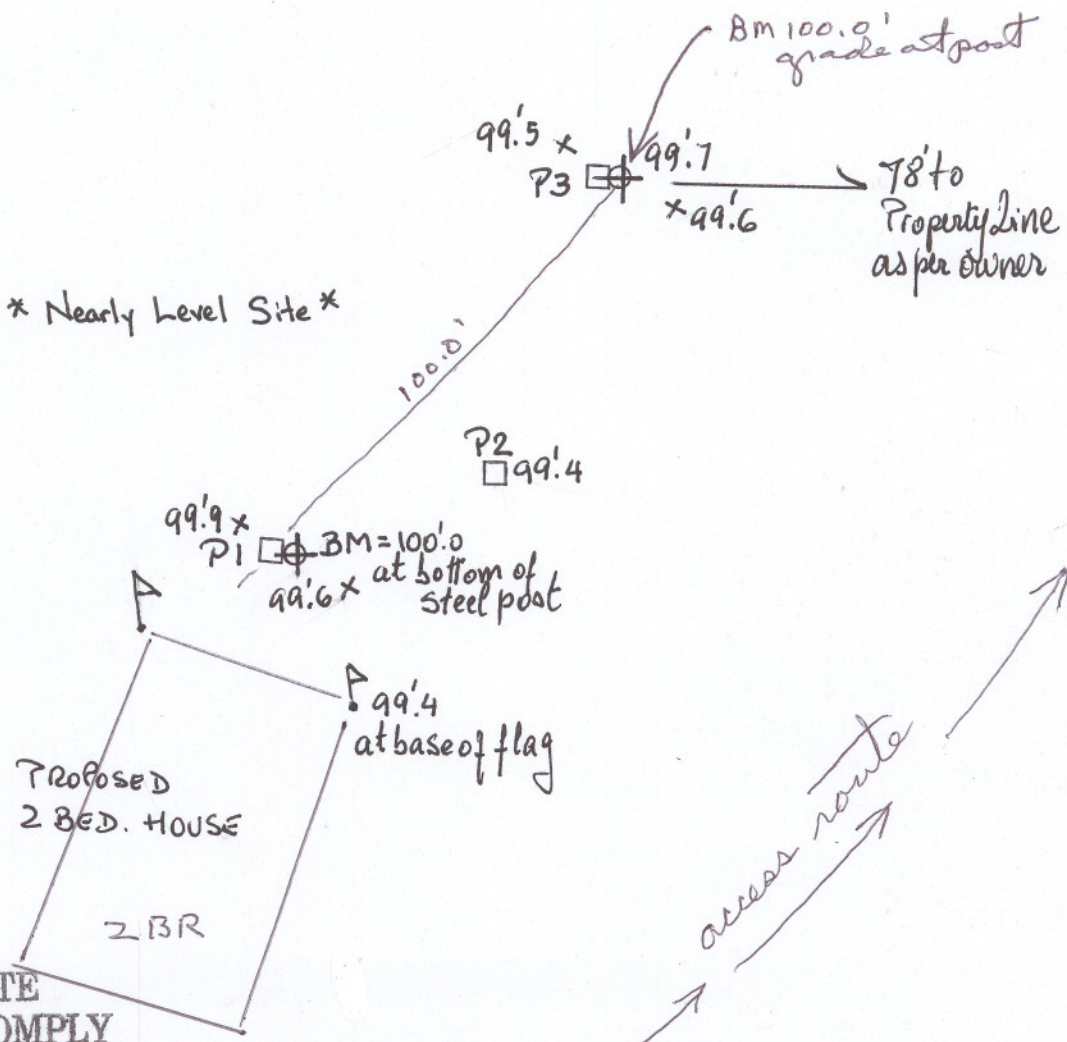 BM 100.0'
grade at post
99'.5 x
P3
99'.7
x 99'.6
78' to
Property Line
as per owner
* Nearly Level Site *
100.0'
P2
99'.4
99'.9 x
P1
BM = 100'.0
at bottom of
steel post
99'.6 x
99'.4
at base of flag
PROPOSED
2 BED. HOUSE
2 BR
access route
TE
OMPLY